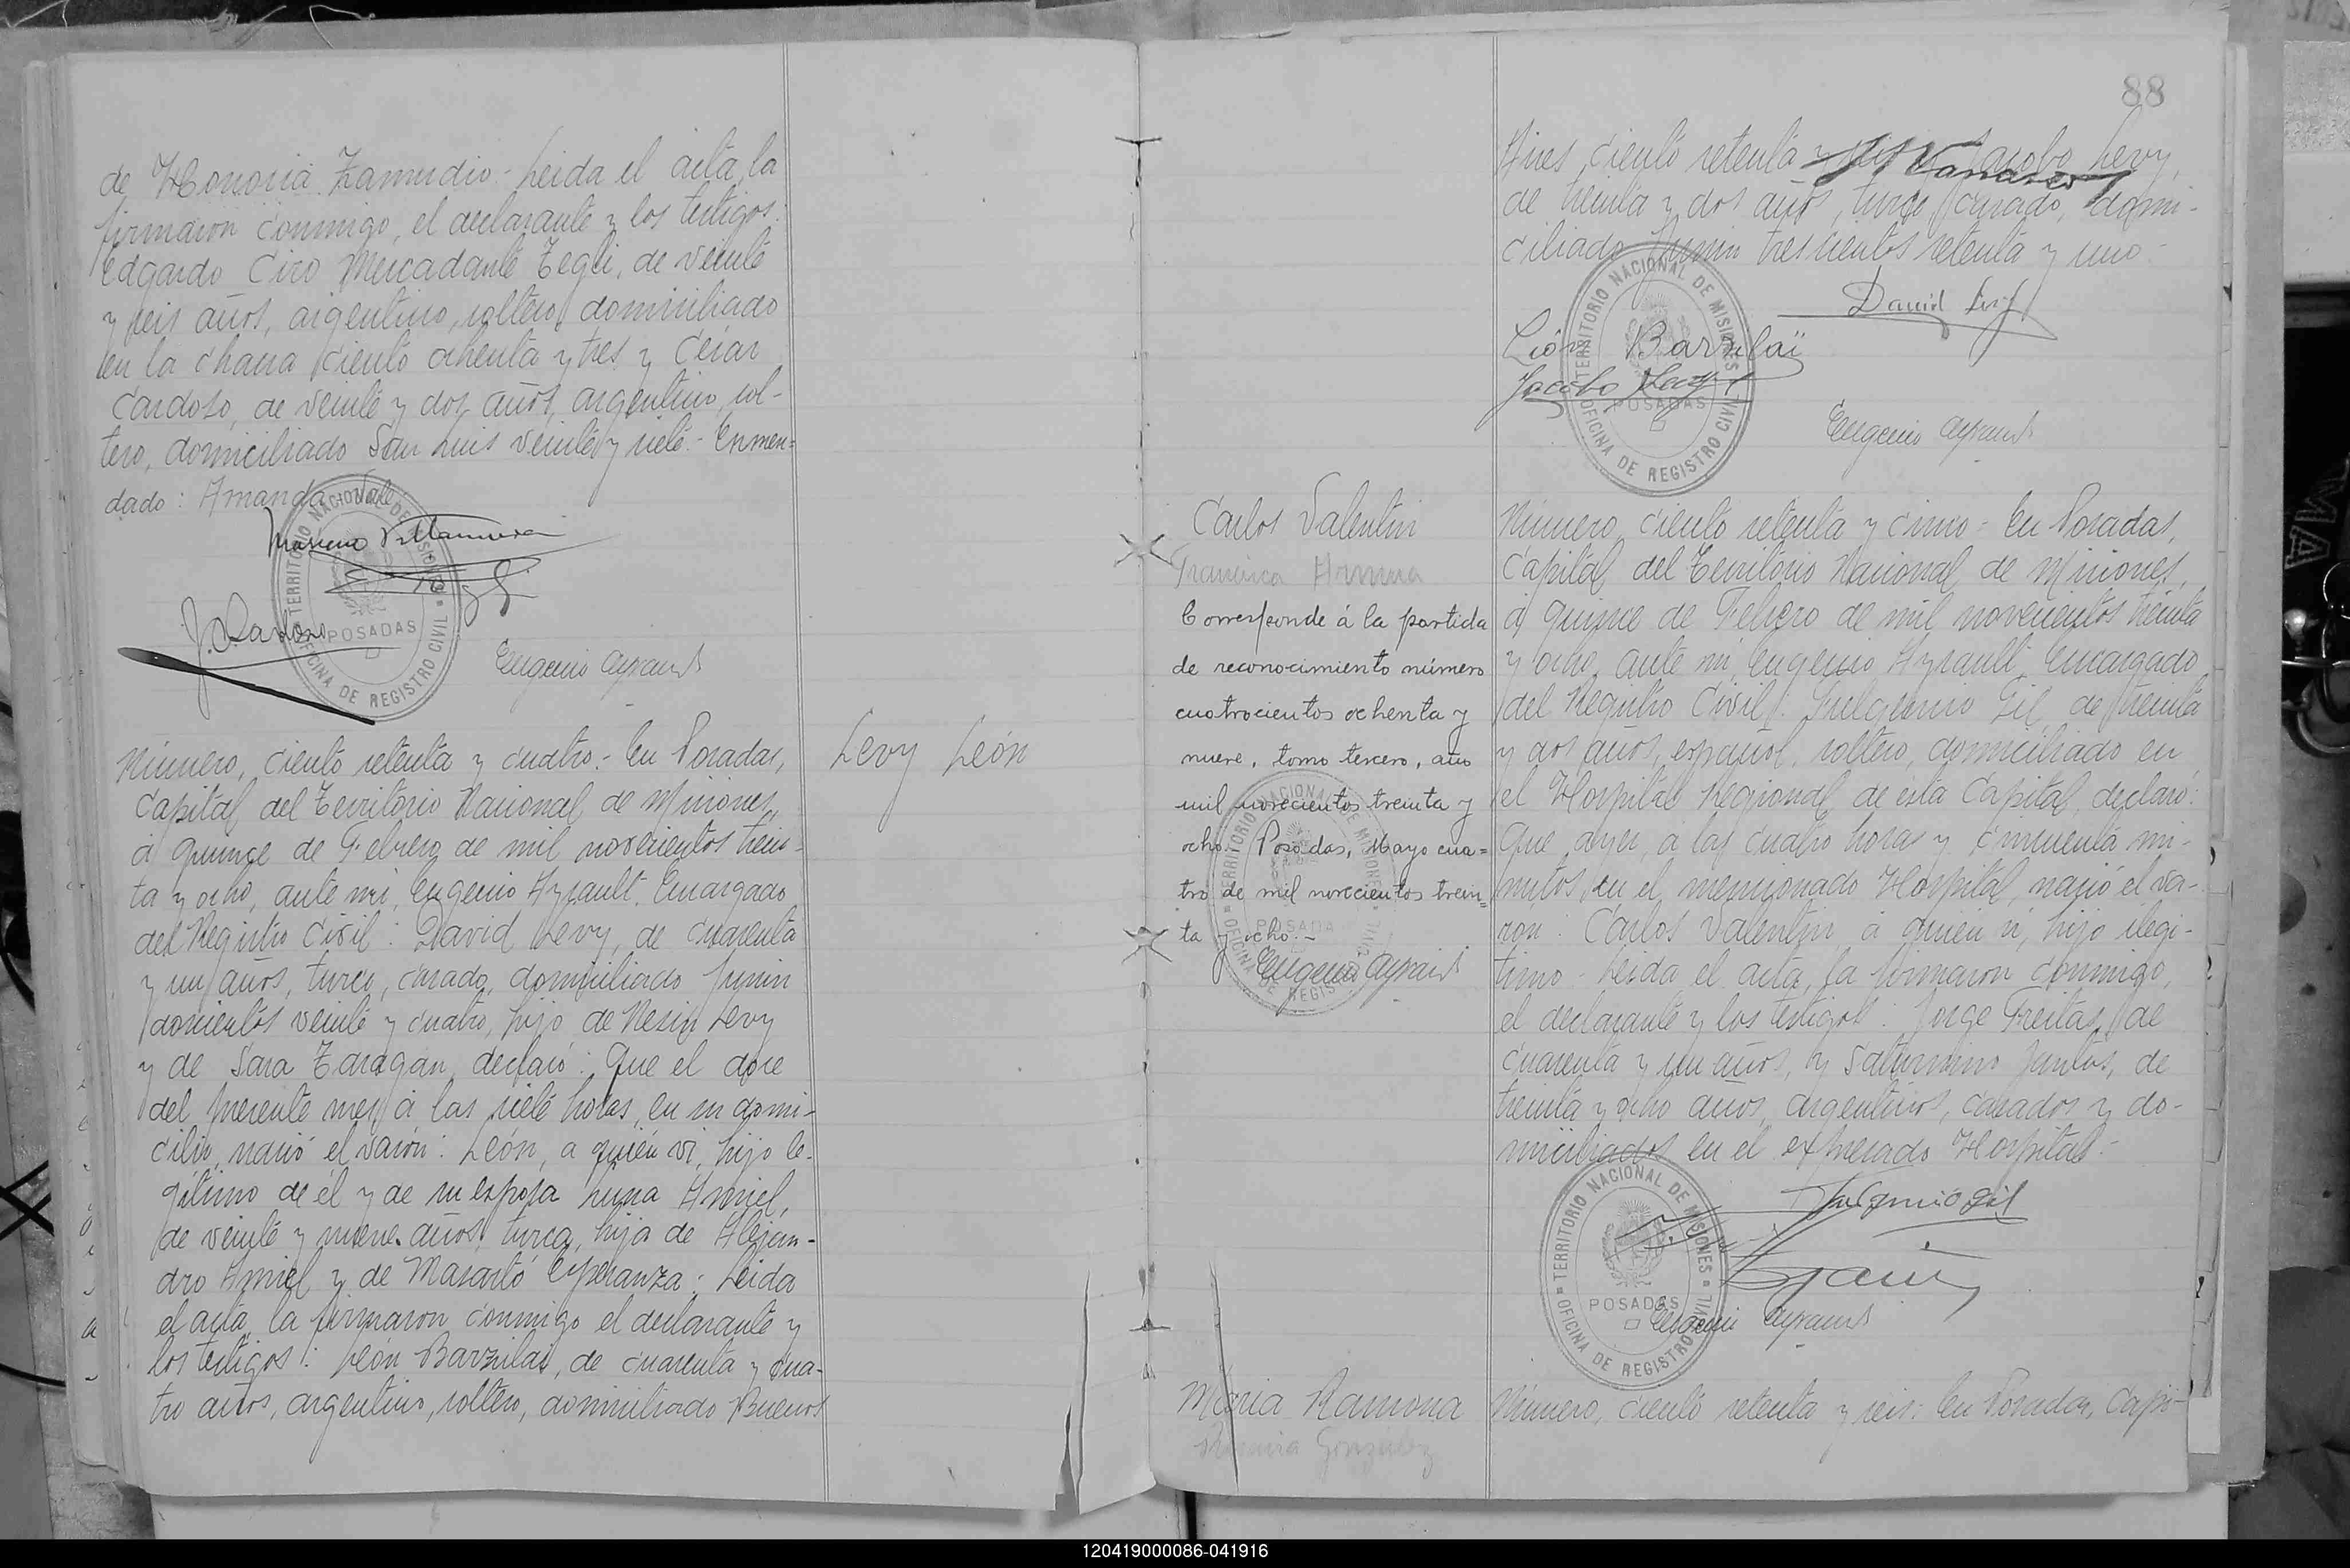 de Honoria Zamudio.- Leida el acta, la
firmaron conmigo, el declarante y los testigos:
Edgardo Ciro Mercadante Zegli, de veinte
y seis años, argentino, soltero, domiciliado
en la chacra ciento ochenta y tres y César
Cardoso, de veinte y dos años, argentino, sol-
tero, domiciliado San Luis veinte y siete.- Enmen=
dado: Amanda. Vale
TERRITORIO NACIONAL DE MISIONES
POSADAS
OFICINA DE REGISTRO CIVIL
Número, ciento setenta y cuatro.- En Posadas,
Capital del Territorio Nacional de Misiones,
á quince de Febrero de mil novecientos trein-
ta y ocho, ante mi, Eugenio Ayrault, Encargado
del Registro Civil: David Levy, de cuarenta
y un años, turco, casado, domiciliado Junin
doscientos veinte y cuatro, hijo de Nesin Levy
y de Sara Zaragan, declaró: Que el doce
del presente mes, á las siete horas, en su domi-
cilio, nació el varón: León, a quién vi, hijo le-
gítimo de él y de su esposa Luna Amiel,
de veinte y nueve años, turca, hija de Alejan-
dro Amiel y de Masartó Esperanza: Leida
el acta, la firmaron conmigo el declarante y
los testigos: León Barzilai, de cuarenta y cua-
tro años, argentino, soltero, domiciliado Buenos
Levy León
88
Aires, ciento setenta y Jacobo Levy,
de treinta y dos años, turco, casado, domi-
ciliado Junin trescientos setenta y uno.-
David Levy
León Barzilaï
Jacobo Levy
TERRITORIO NACIONAL DE MISIONES
POSADAS
OFICINA DE REGISTRO CIVIL
Eugenio Ayrault
Carlos Valentin
Francisca
Corresponde á la partida
de reconocimiento número
cuatrocientos ochenta y
nueve, tomo tercero, año
mil novecientos treinta y
ocho. Posadas, Mayo cua=
tro de mil novecientos trein=
ta y ocho.-
Eugenio Ayrault
Número, ciento setenta y cinco.- En Posadas,
Capital del Territorio Nacional de Misiones,
á quince de Febrero de mil novecientos treinta
y ocho, ante mi, Eugenio Ayrault, Encargado
del Registro Civil: Fulgencio Gil, de treinta
y dos años, español, soltero, domiciliado en
el Hospital Regional de esta Capital, declaró:
Que, ayer, a las cuatro horas y cincuenta mi-
nutos, en el mencionado Hospital, nació el va-
rón: Carlos Valentin, á quien vi, hijo ilegi-
timo.- Leida el acta, la firmaron conmigo,
el declarante y los testigos: Jorge Freitas, de
cuarenta y un años, y Saturnino Juntas, de
treinta y ocho años, argentinos, casados y do-
miciliados en el expresado Hospital.-
Fulgencio Gil
TERRITORIO NACIONAL DE MISIONES
POSADAS
OFICINA DE REGISTRO CIVIL
Eugenio Ayrault
Maria Ramona
Gonzalez
Número, ciento setenta y seis: En Posadas, Capi-
120419000086-041916